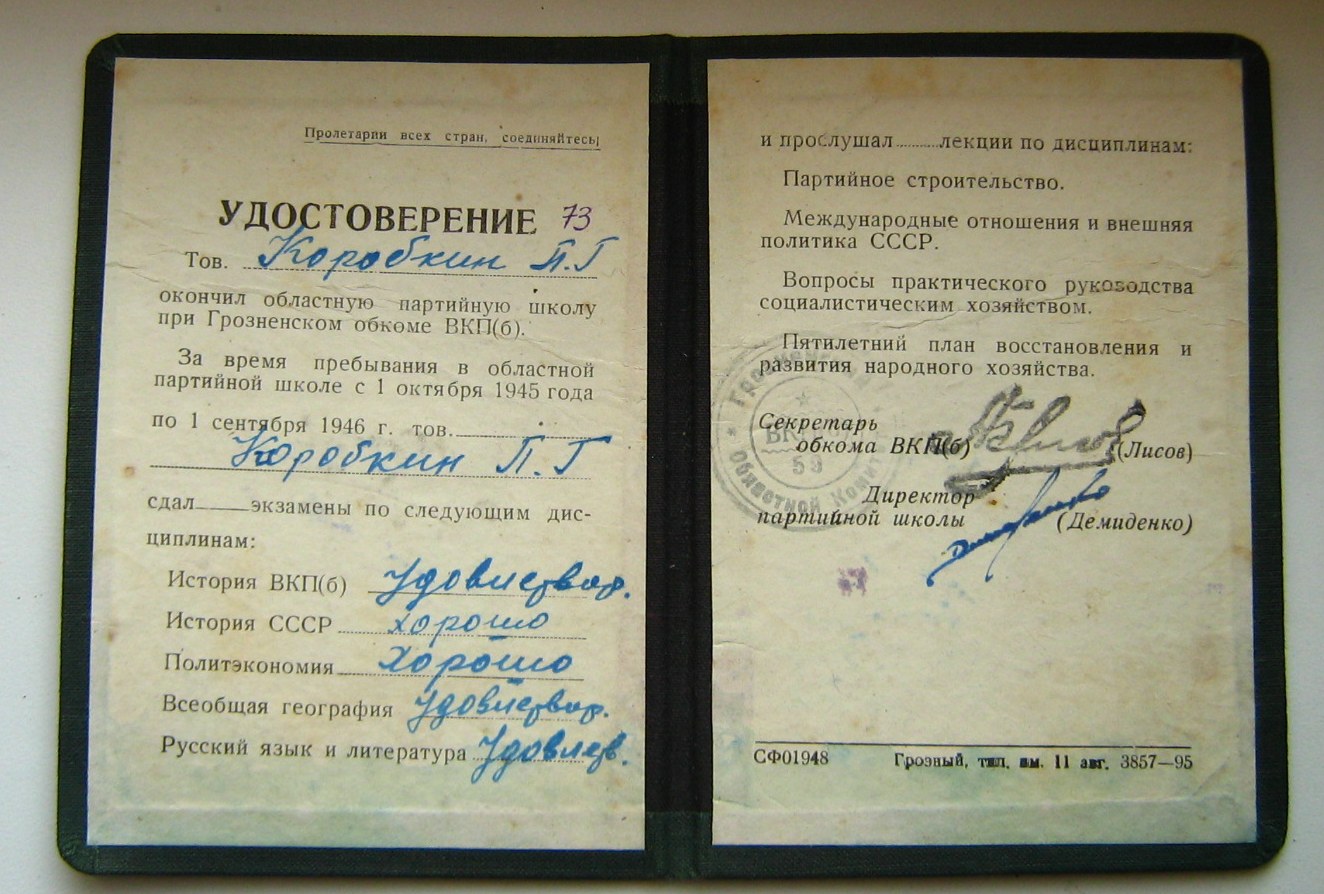 Пролетарии всех стран, соединяйтесь!
УДОСТОВЕРЕНИЕ 73
Тов. Коробкин П.Г
окончил областную партийную школу
при Грозненском обкоме ВКП(б).
За время пребывания в областной
партийной школе с 1 октября 1945 года
по 1 сентября 1946 г. тов.
Коробкин П.Г
сдал экзамены по следующим дис-
циплинам:
История ВКП(б) Удовлетвор.
История СССР хорошо
Политэкономия Хорошо
Всеобщая география Удовлетвор.
Русский язык и литература Удовлетв.
и прослушал лекции по дисциплинам:
Партийное строительство.
Международные отношения и внешняя
политика СССР.
Вопросы практического руководства
социалистическим хозяйством.
Пятилетний план восстановления и
развития народного хозяйства.
Секретарь
обкома ВКП(б) (Лисов)
Директор
партийной школы (Демиденко)
Областной Комит
59
СФ01948 Грозный, тип. им. 11 авг. 3857—95